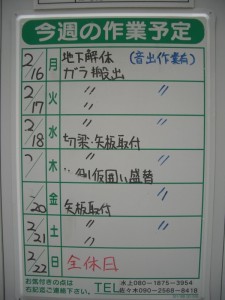 今週の作業予定
2/16 月 地下解体 (音出作業有)
ガラ搬出
2/17 火 〃 〃
2/18 水 〃 〃
切梁・矢板取付
木 〃 仮囲い盛替 〃
/20 金 矢板取付 〃
2/21 土 〃 〃
2/22 日 全休日
お気付きの点は
右記迄ご連絡下さい。
TEL
水上080-1875-3954
佐々木090-2568-8418